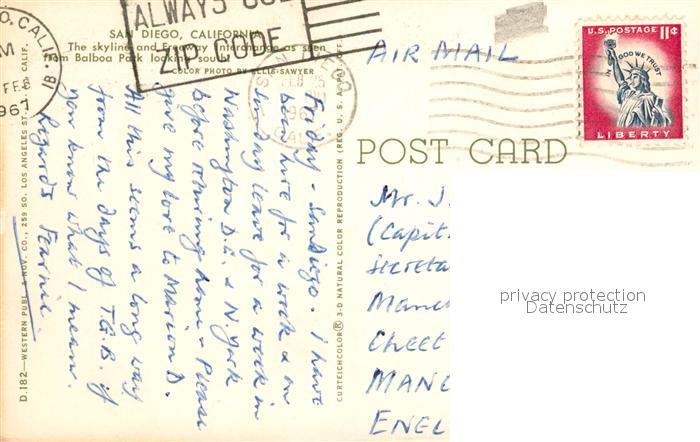 SAN DIEGO, CALIFORNIA
The skyline and Freeway interchange as seen
from Balboa Park looking south
COLOR PHOTO BY ELLIS-SAWYER
ALWAYS USE
ZIP CODE
O, CALIF.
FEB
1967
AIR MAIL
U.S. POSTAGE 11¢
IN GOD WE TRUST
LIBERTY
POST CARD
Friday - San Diego. I have
been here for a week & on
Sunday leave for a week in
Washington D.C. & N. York
Before returning home - Please
give my love to Marion D.
All this seems a long way
from the days of T.G.B. if
you know what I mean.
Regards
Mr. J.
(Capit.
Secreta
Manch
Cheet
MANC
ENGL
D.182—WESTERN PUBL. & NOV. CO., 259 SO. LOS ANGELES ST., LOS ANGELES, CALIF.
CURTEICHCOLOR® 3-D NATURAL COLOR REPRODUCTION (REG. U.S.A. PAT. OFF.
privacy protection
Datenschutz